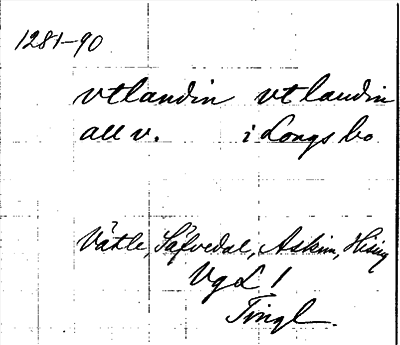 1281-90
vtlandin vtlandin
all v. i Longs bo
Vätle, Säfvedal, Askim, Hising
VgL 1
Tingl.